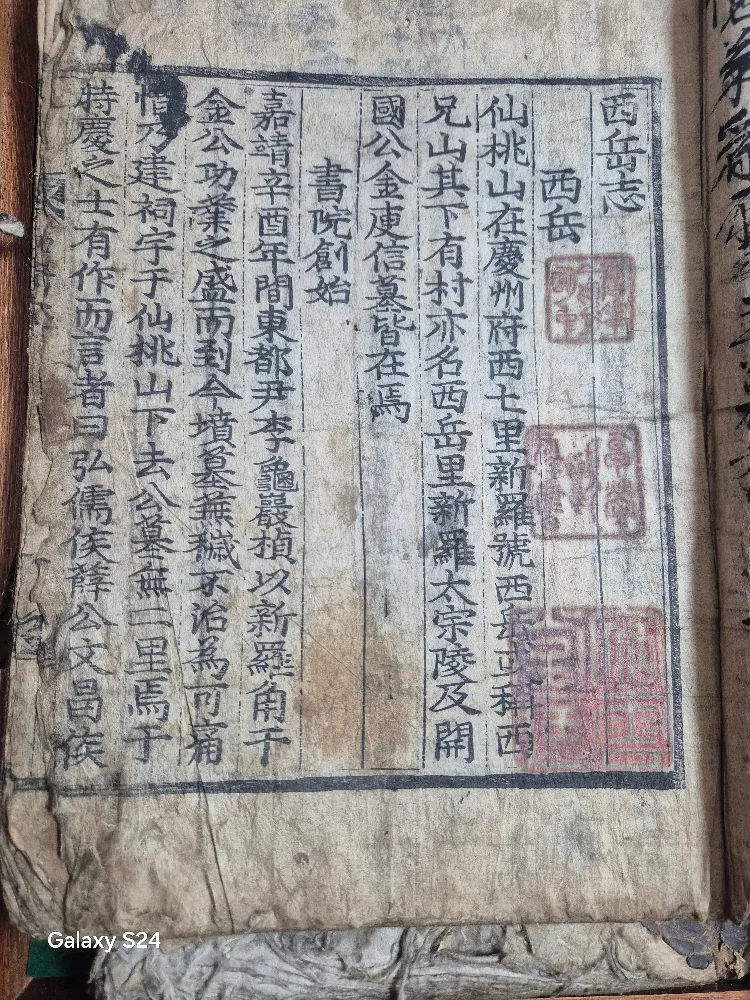 西岳志
西岳
仙桃山在慶州府西七里新羅號西岳或稱西
兄山其下有村亦名西岳里新羅太宗陵及開
國公金庾信墓皆在焉
書院創始
嘉靖辛酉年間東都尹李龜巖楨以新羅角干
金公功業之盛而到今墳墓蕪穢不治為可痛
惜乃建祠宇于仙桃山下去公墓無二里焉于
時慶之士有作而言者曰弘儒侯薛公文昌侯
Galaxy S24